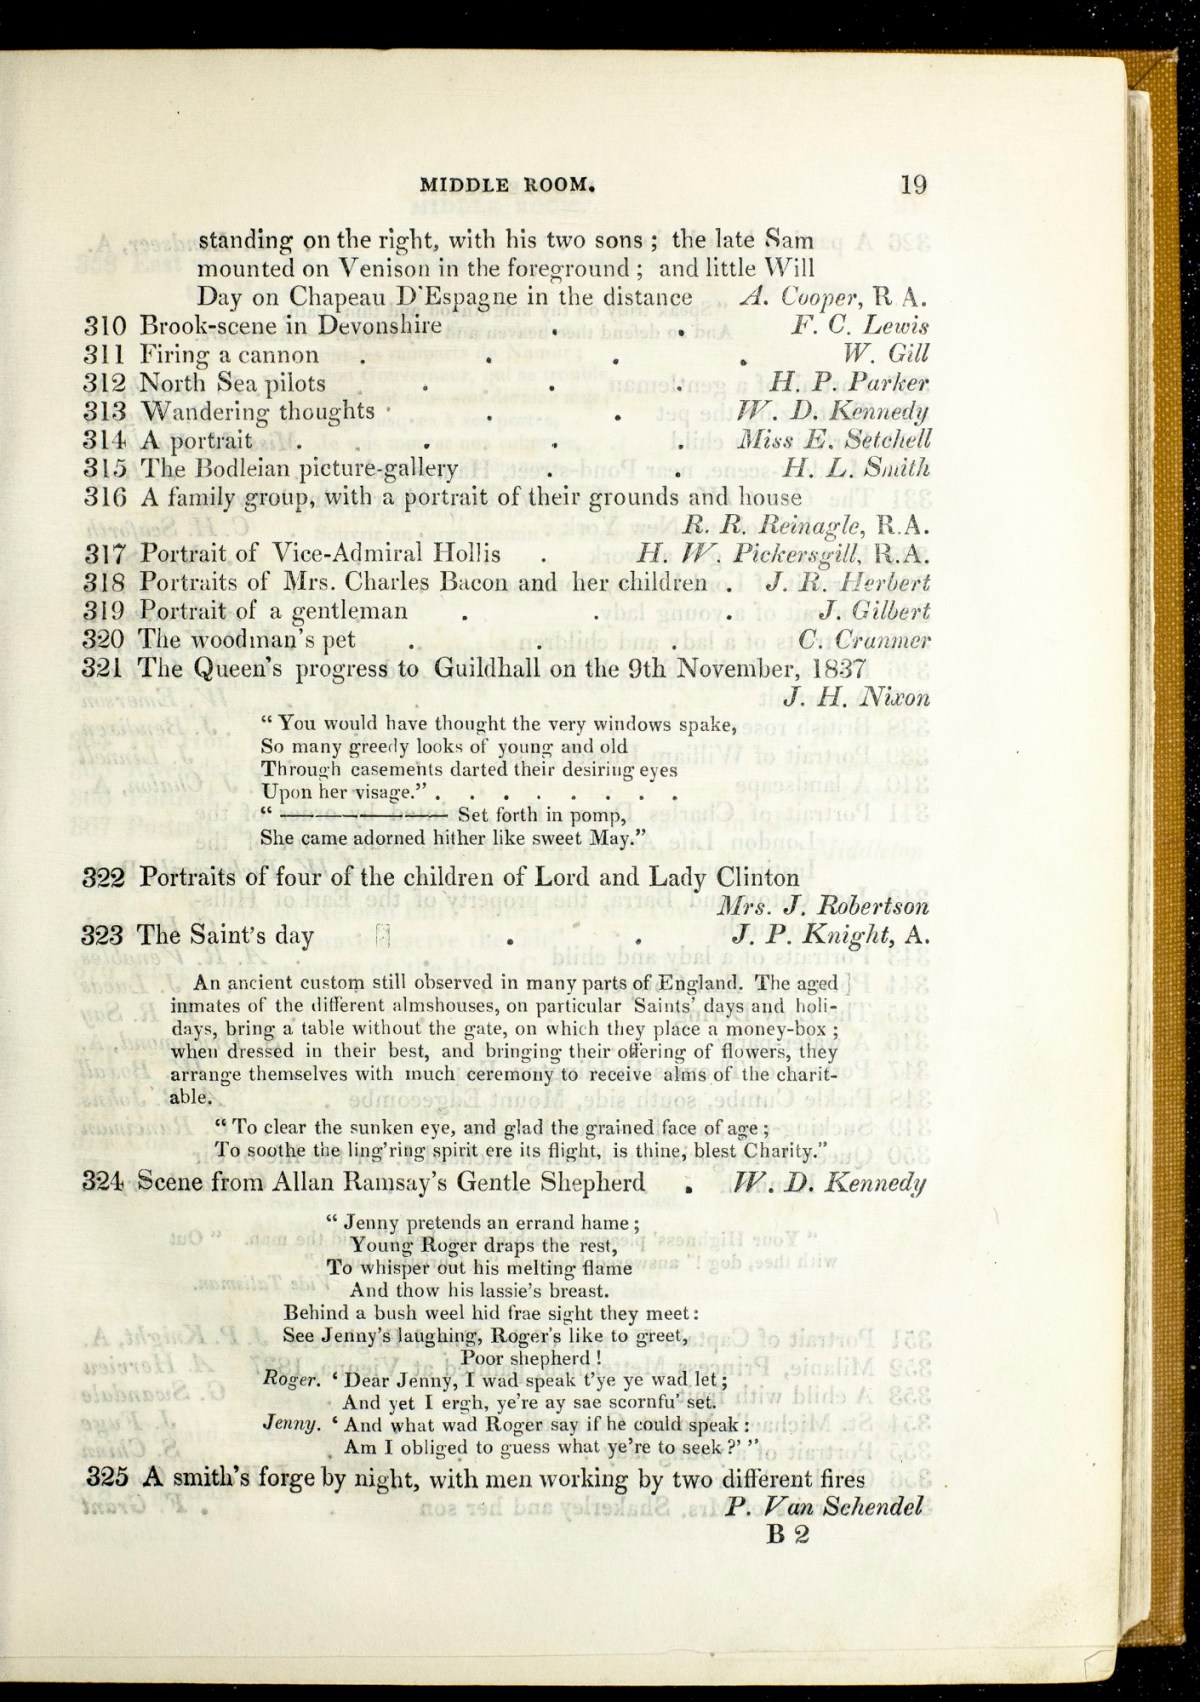 MIDDLE ROOM. 19
standing on the right, with his two sons ; the late Sam
mounted on Venison in the foreground ; and little Will
Day on Chapeau D'Espagne in the distance A. Cooper, R A.
310 Brook-scene in Devonshire . . F. C. Lewis
311 Firing a cannon . . . . W. Gill
312 North Sea pilots . . . H. P. Parker
313 Wandering thoughts . . W. D. Kennedy
314 A portrait . . . . Miss E. Setchell
315 The Bodleian picture-gallery . . H. L. Smith
316 A family group, with a portrait of their grounds and house
R. R. Reinagle, R.A.
317 Portrait of Vice-Admiral Hollis . H. W. Pickersgill, R.A.
318 Portraits of Mrs. Charles Bacon and her children . J. R. Herbert
319 Portrait of a gentleman . . . J. Gilbert
320 The woodman's pet . . . C. Cranmer
321 The Queen's progress to Guildhall on the 9th November, 1837
J. H. Nixon
“ You would have thought the very windows spake,
So many greedy looks of young and old
Through casements darted their desiring eyes
Upon her visage.” . . . . . . . .
“ ———————— Set forth in pomp,
She came adorned hither like sweet May.”
322 Portraits of four of the children of Lord and Lady Clinton
Mrs. J. Robertson
323 The Saint's day . . J. P. Knight, A.
An ancient custom still observed in many parts of England. The aged
inmates of the different almshouses, on particular Saints' days and holi-
days, bring a table without the gate, on which they place a money-box ;
when dressed in their best, and bringing their offering of flowers, they
arrange themselves with much ceremony to receive alms of the charit-
able.
“ To clear the sunken eye, and glad the grained face of age ;
To soothe the ling'ring spirit ere its flight, is thine, blest Charity.”
324 Scene from Allan Ramsay's Gentle Shepherd . W. D. Kennedy
“ Jenny pretends an errand hame ;
Young Roger draps the rest,
To whisper out his melting flame
And thow his lassie's breast.
Behind a bush weel hid frae sight they meet :
See Jenny's laughing, Roger's like to greet,
Poor shepherd !
Roger. ‘ Dear Jenny, I wad speak t'ye ye wad let ;
And yet I ergh, ye're ay sae scornfu' set.
Jenny. ‘ And what wad Roger say if he could speak :
Am I obliged to guess what ye're to seek ?’ ”
325 A smith's forge by night, with men working by two different fires
P. Van Schendel
B 2